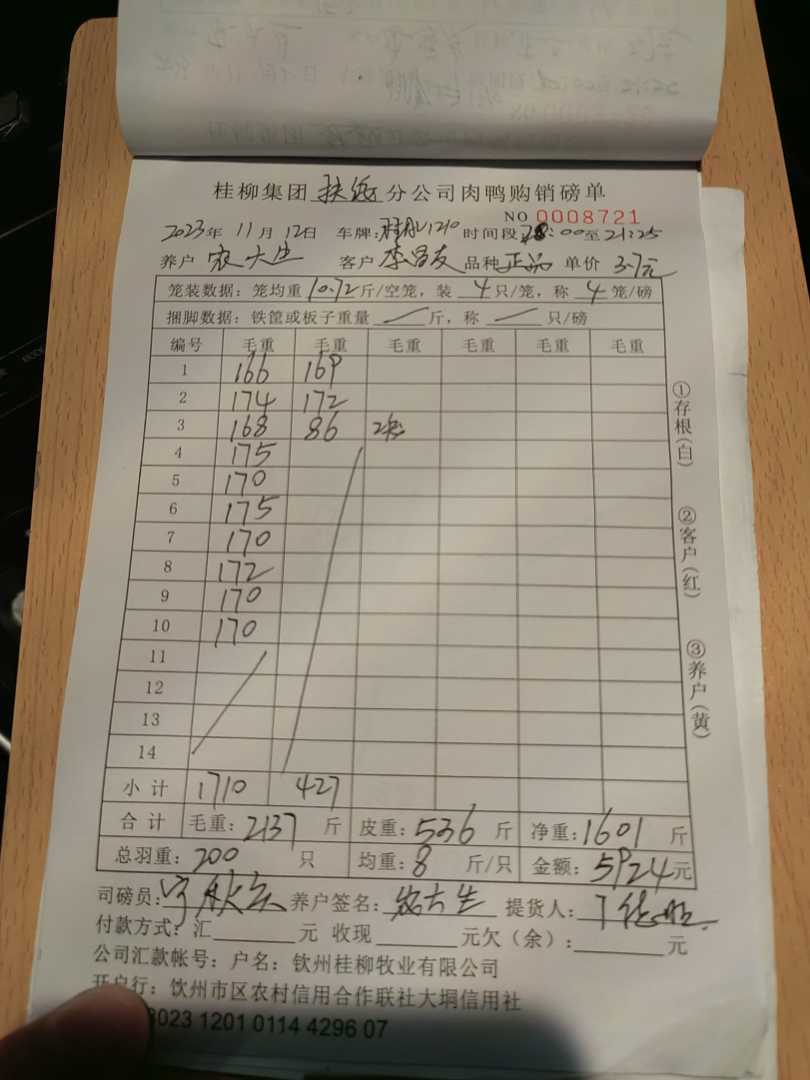 桂柳集团 扶绥 分公司肉鸭购销磅单
NO 0008721
2023年 11月 12日 车牌: 时间段 :00至21:25
养户 农大生 客户 李昌友 品种 正品 单价 3.7元
笼装数据:笼均重 10.72 斤/空笼,装 4 只/笼,称 4 笼/磅
捆脚数据:铁筐或板子重量 斤,称 只/磅
编号 毛重 毛重 毛重 毛重 毛重 毛重
1 166 169
2 174 172
3 168 86
4 175
5 170
6 175
7 170
8 172
9 170
10 170
11
12
13
14
小计 1710 427
合计 毛重:2137 斤 皮重:536 斤 净重:1601 斤
总羽重:200 只 均重:8 斤/只 金额:5924元
司磅员: 养户签名:农大生 提货人:
付款方式:汇 元 收现 元欠(余): 元
公司汇款帐号:户名:钦州桂柳牧业有限公司
开户行:饮州市区农村信用合作联社大垌信用社
8023 1201 0114 4296 07
①存根(白)
②客户(红)
③养户(黄)